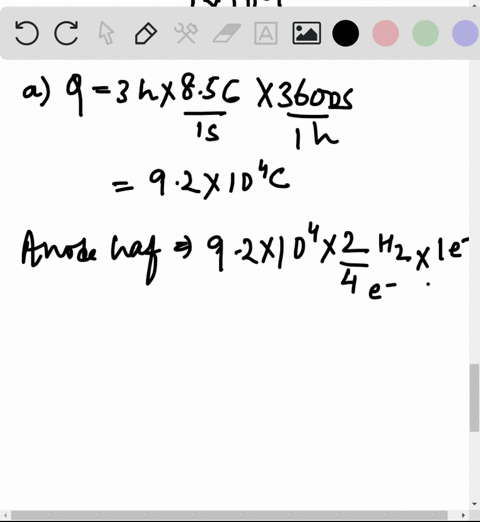 a) q = 3 h × 8.5C/1s × 3600s/1h
= 9.2 × 10⁴C
Anode haf ⇒ 9.2×10⁴ × 2 H₂/4 e⁻ × 1e⁻